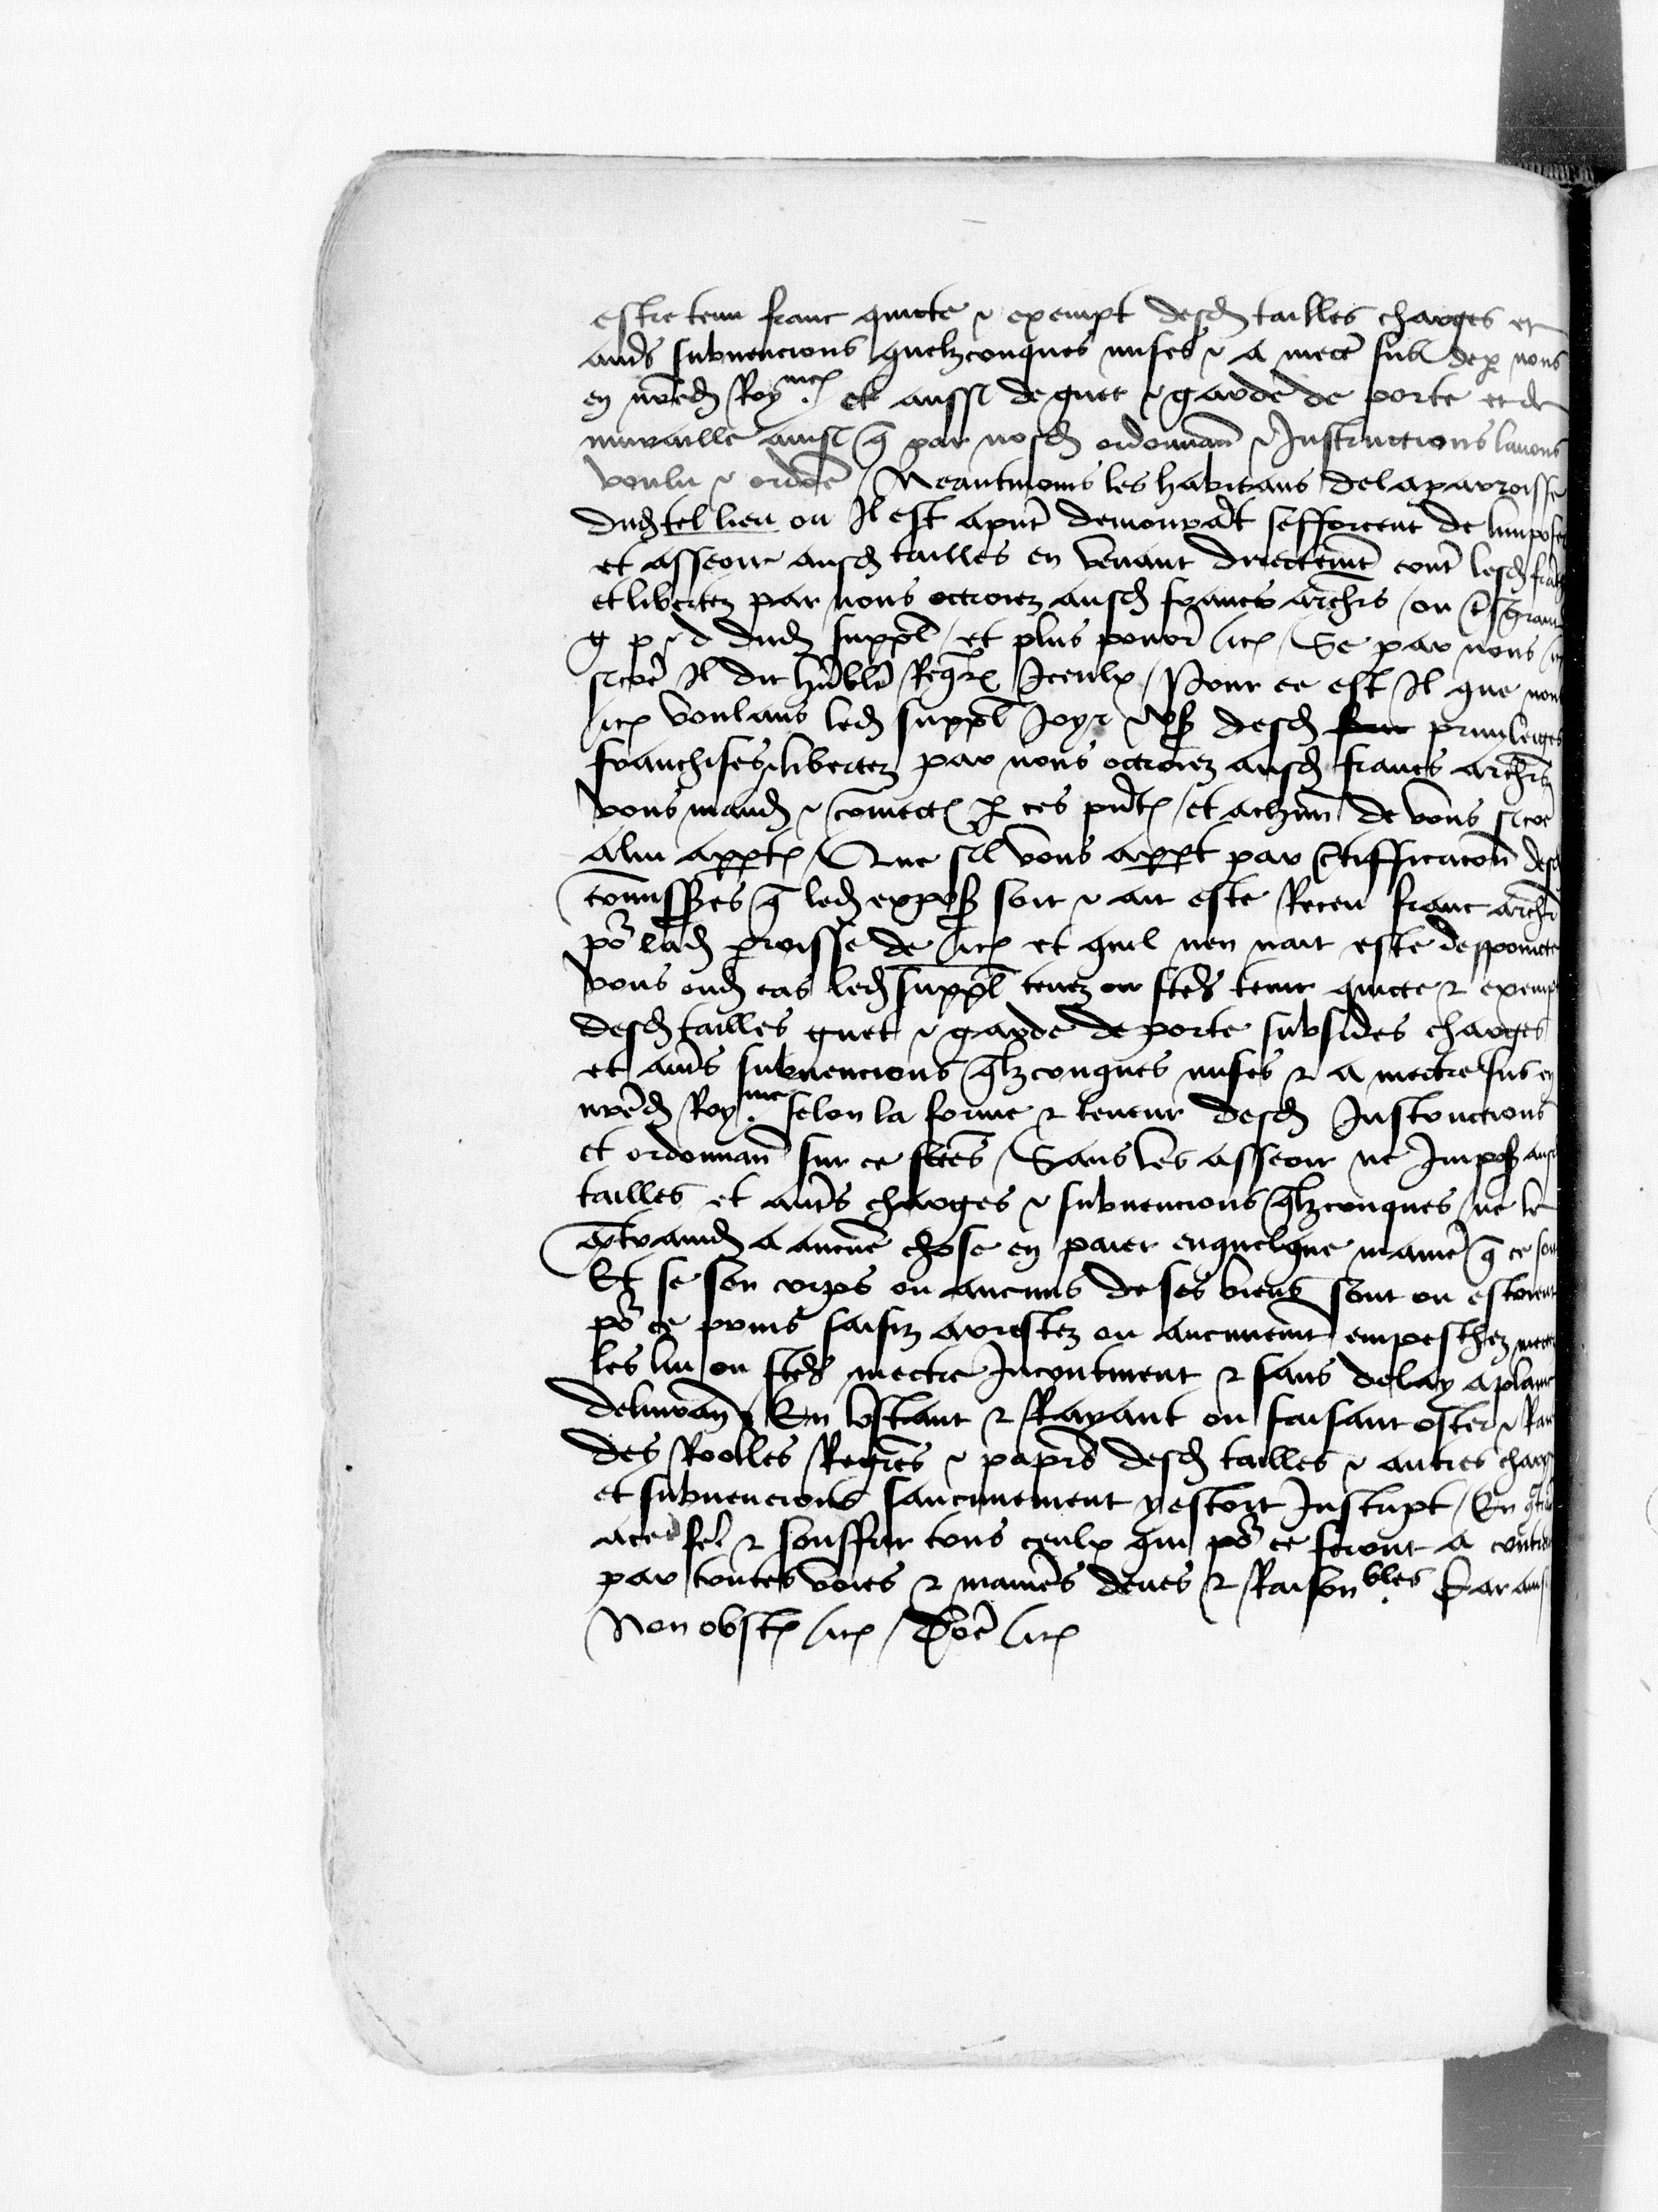 estre tenu franc quicte & exempt desd tailles charges et
auts subuencions quelzconques mises & a mectr sus dep nous
en nred Roy.me et aussi de guet & garde de porte et de
muraille ainsi q par nosd ordonnan & Instructions lauons
voulu & ordoe / Neantmoins les habitans de la parroisse
dud tel lieu ou Il est apnt demourat sefforcent de limposer
et asseoir ausd tailles en venant directemt contr lesd
et libertez par nous octroiez ausd francs archrs / ou gran
g p & d dud suppl / et plus pouor etc / Se par nous
secor Il dit humble Requer Iceulx / Pour ce est Il que nous
etc voulans led suppl Joyr & usr desd priuileiges
franchises libertez par nous octroiez ausd francs archrs
vous mand & comectt p ces pntes / et a chun de vous sicoe
a lui appt / Que sil vous appt par ctifficacon desd
comissres q led expos soit & ait este Receu franc archr
po lad proisse de etc et quil nen nait este despoincte
vous oud cas led suppl tenez ou ftes tenir quicte & exempt
desd tailles guet & garde de porte subsides charges
et auts subuencions qlzconques mises & a mectre sus en
nred Roy.me selon la forme & teneur desd Instructions
et ordonnan sur ce fctes / Sans les asseoir ne Impos ausd
tailles et auts charges & subuencions qlzconques / ne le
contraind a aucune chose en paier en quelque manie q ce soit
Et se son corps ou aucuns de ses biens sont ou estoient
po ce prins saisiz arrestez ou aucunemt empeschez mectez
les lui ou ftes mectre Incontinent & sans delay a plaine
deliuran / En ostant & Rayant ou faisant oster & Raier
des Roolles Regres & papiers desd tailles & autres charg
et subuencions saucunement y estoit Inscript / En
a ce fe & souffrir tous ceulx qui po ce seront a contrai
par toutes voies & manies deues & Raison.bles Car ainsi
Non obst etc / Doe etc